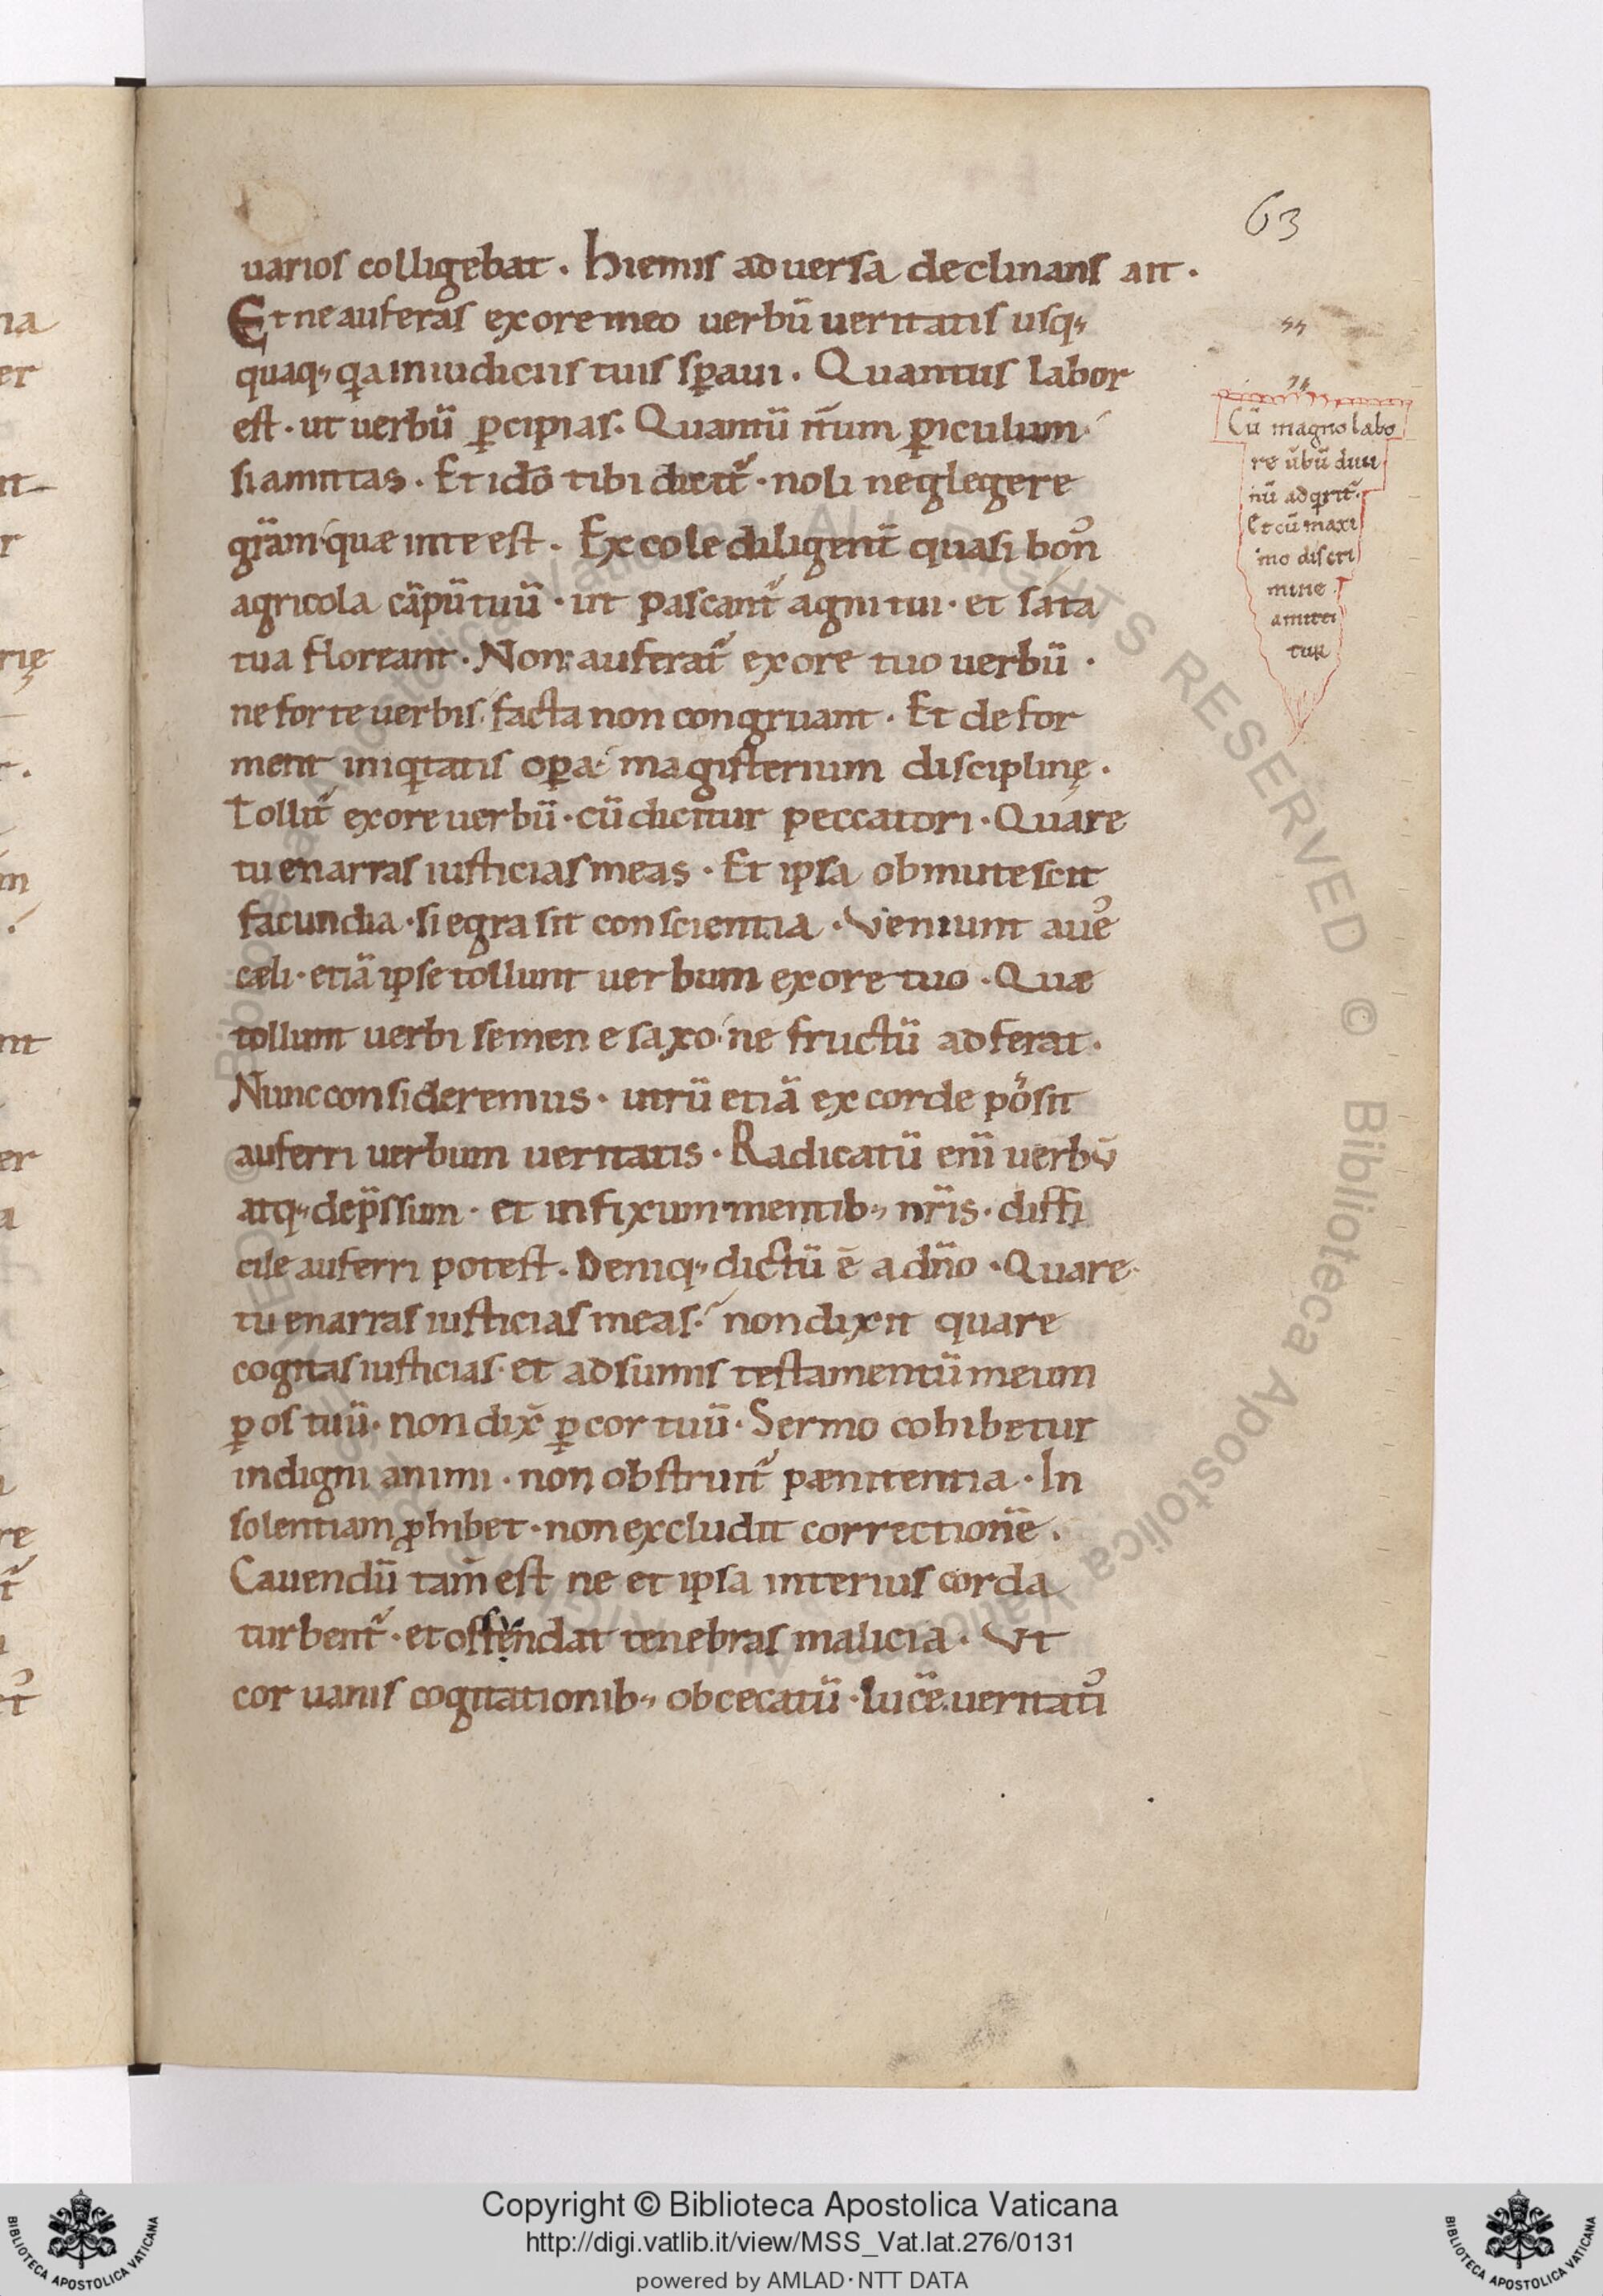 63
uarios colligebat. hiemis aduersa declinans ait.
Et ne auferas ex ore meo uerbū ueritatis usq;
quaq; qa in iudiciis tuis sꝑaui. Quantus labor
est. ut uerbū ꝑcipias. Quantū itūm ꝑiculum
si amittas. Et idō tibi dicit᷑. noli neglegere
grām quæ in te est. Excole diligent̄ quasi bonꝰ
agricola cāpū tuū. ut pascant᷑ agni tui. et sata
tua floreant. Non auferat᷑ ex ore tuo uerbū.
ne forte uerbis facta non congruant. Et defor
ment iniqtatis oꝑa magisterium disciplinę.
Tollit᷑ ex ore uerbū. cū dicitur peccatori. Quare
tu enarras iusticias meas. Et ipsa obmutescit
facundia. si egra sit conscientia. Veniunt aueˀ
cæli. etiā ipse tollunt uerbum ex ore tuo. Quæ
tollunt uerbi semen e saxo ne fructū adferat.
Nunc consideremus. utrū etiā ex corde posit
auferri uerbum ueritatis. Radicatū enī uerbū
atq; dep̄ssum. et infixum mentib; nr̄is. diffi
cile auferri potest. Deniq; dictū ē a dn̄o. Quare
tu enarras iusticias meas. non dixit quare
cogitas iusticias. et adsumis testamentū meum
ꝑ os tuū. non dix̄ ꝑ cor tuū. Sermo cohibetur
indigni animi. non obstruit᷑ pænitentia. In
solentiam ꝓhibet. non excludit correctionē.
Cauendū tam̄ est ne et ipsa interius corda
turbent᷑. et offendat tenebras malicia. Vt
cor uanis cogitationib; obcecatū. lucē ueritatiˀ
Cū magno labo
re ūbū diui
nū adqrit᷑.
Et cū maxi
mo discri
mine
amitti
tur
Copyright © Biblioteca Apostolica Vaticana
http://digi.vatlib.it/view/MSS_Vat.lat.276/0131
powered by AMLAD·NTT DATA
BIBLIOTECA APOSTOLICA VATICANA
BIBLIOTECA APOSTOLICA VATICANA